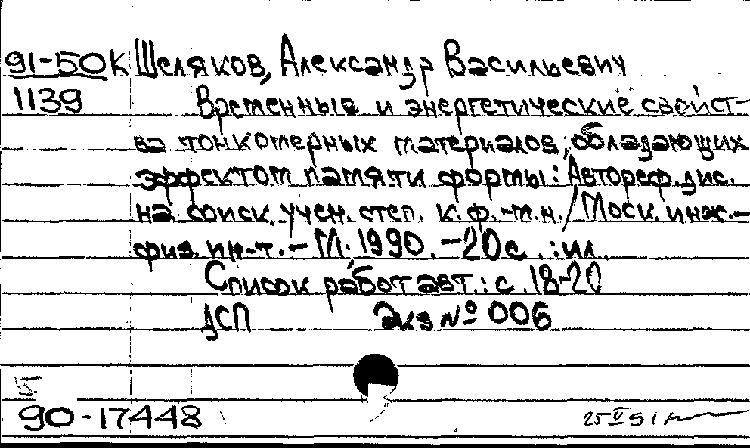 91-50К Шеляков, Александр Васильевич
1139 Временные и энергетические свойст-
ва тонкомерных материалов, обладающих
эффектом памяти формы: Автореф. дис.
на соиск. учен. степ. к.ф.-м.н. / Моск. инж.-
физ. ин-т. - М. 1990. - 20 с. : ил.
Список работ авт.: с. 18-20
ДСП Экз № 006
90-17448 25 V 91